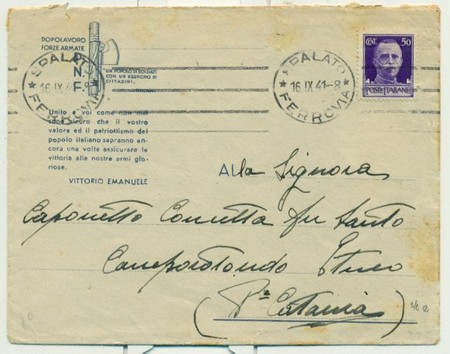 DOPOLAVORO
FORZE ARMATE
P.
N.
F.
UN POPOLO DI SOLDATI
CON UN ESERCITO DI
CITTADINI.
SPALATO
16 IX 41-8
FERROVIA
SPALATO
16 IX 41-8
FERROVIA
CENT. 50
POSTE ITALIANE
Unito a voi come non mai
sono sicuro che il vostro
valore ed il patriottismo del
popolo italiano sapranno an-
cora una volta assicurare la
vittoria alle nostre armi glo-
riose.
VITTORIO EMANUELE
Alla Signora
Caponetto Concetta fu Santo
Camporotondo Etneo
(Pa Catania)